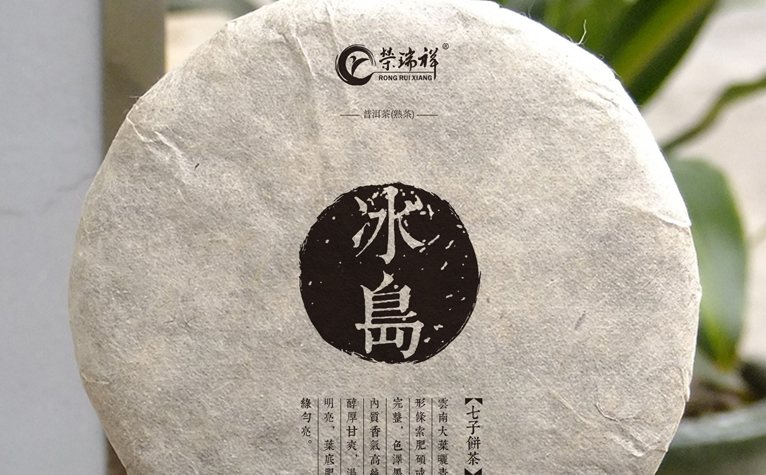 榮瑞祥®
RONG RUI XIANG
普洱茶(熟茶)
冰
島
【七子餅茶】
雲南大葉曬
形條索肥碩
完整，色澤
內質香氣高
醇厚甘爽，湯
明亮，葉底肥
緣勻亮。